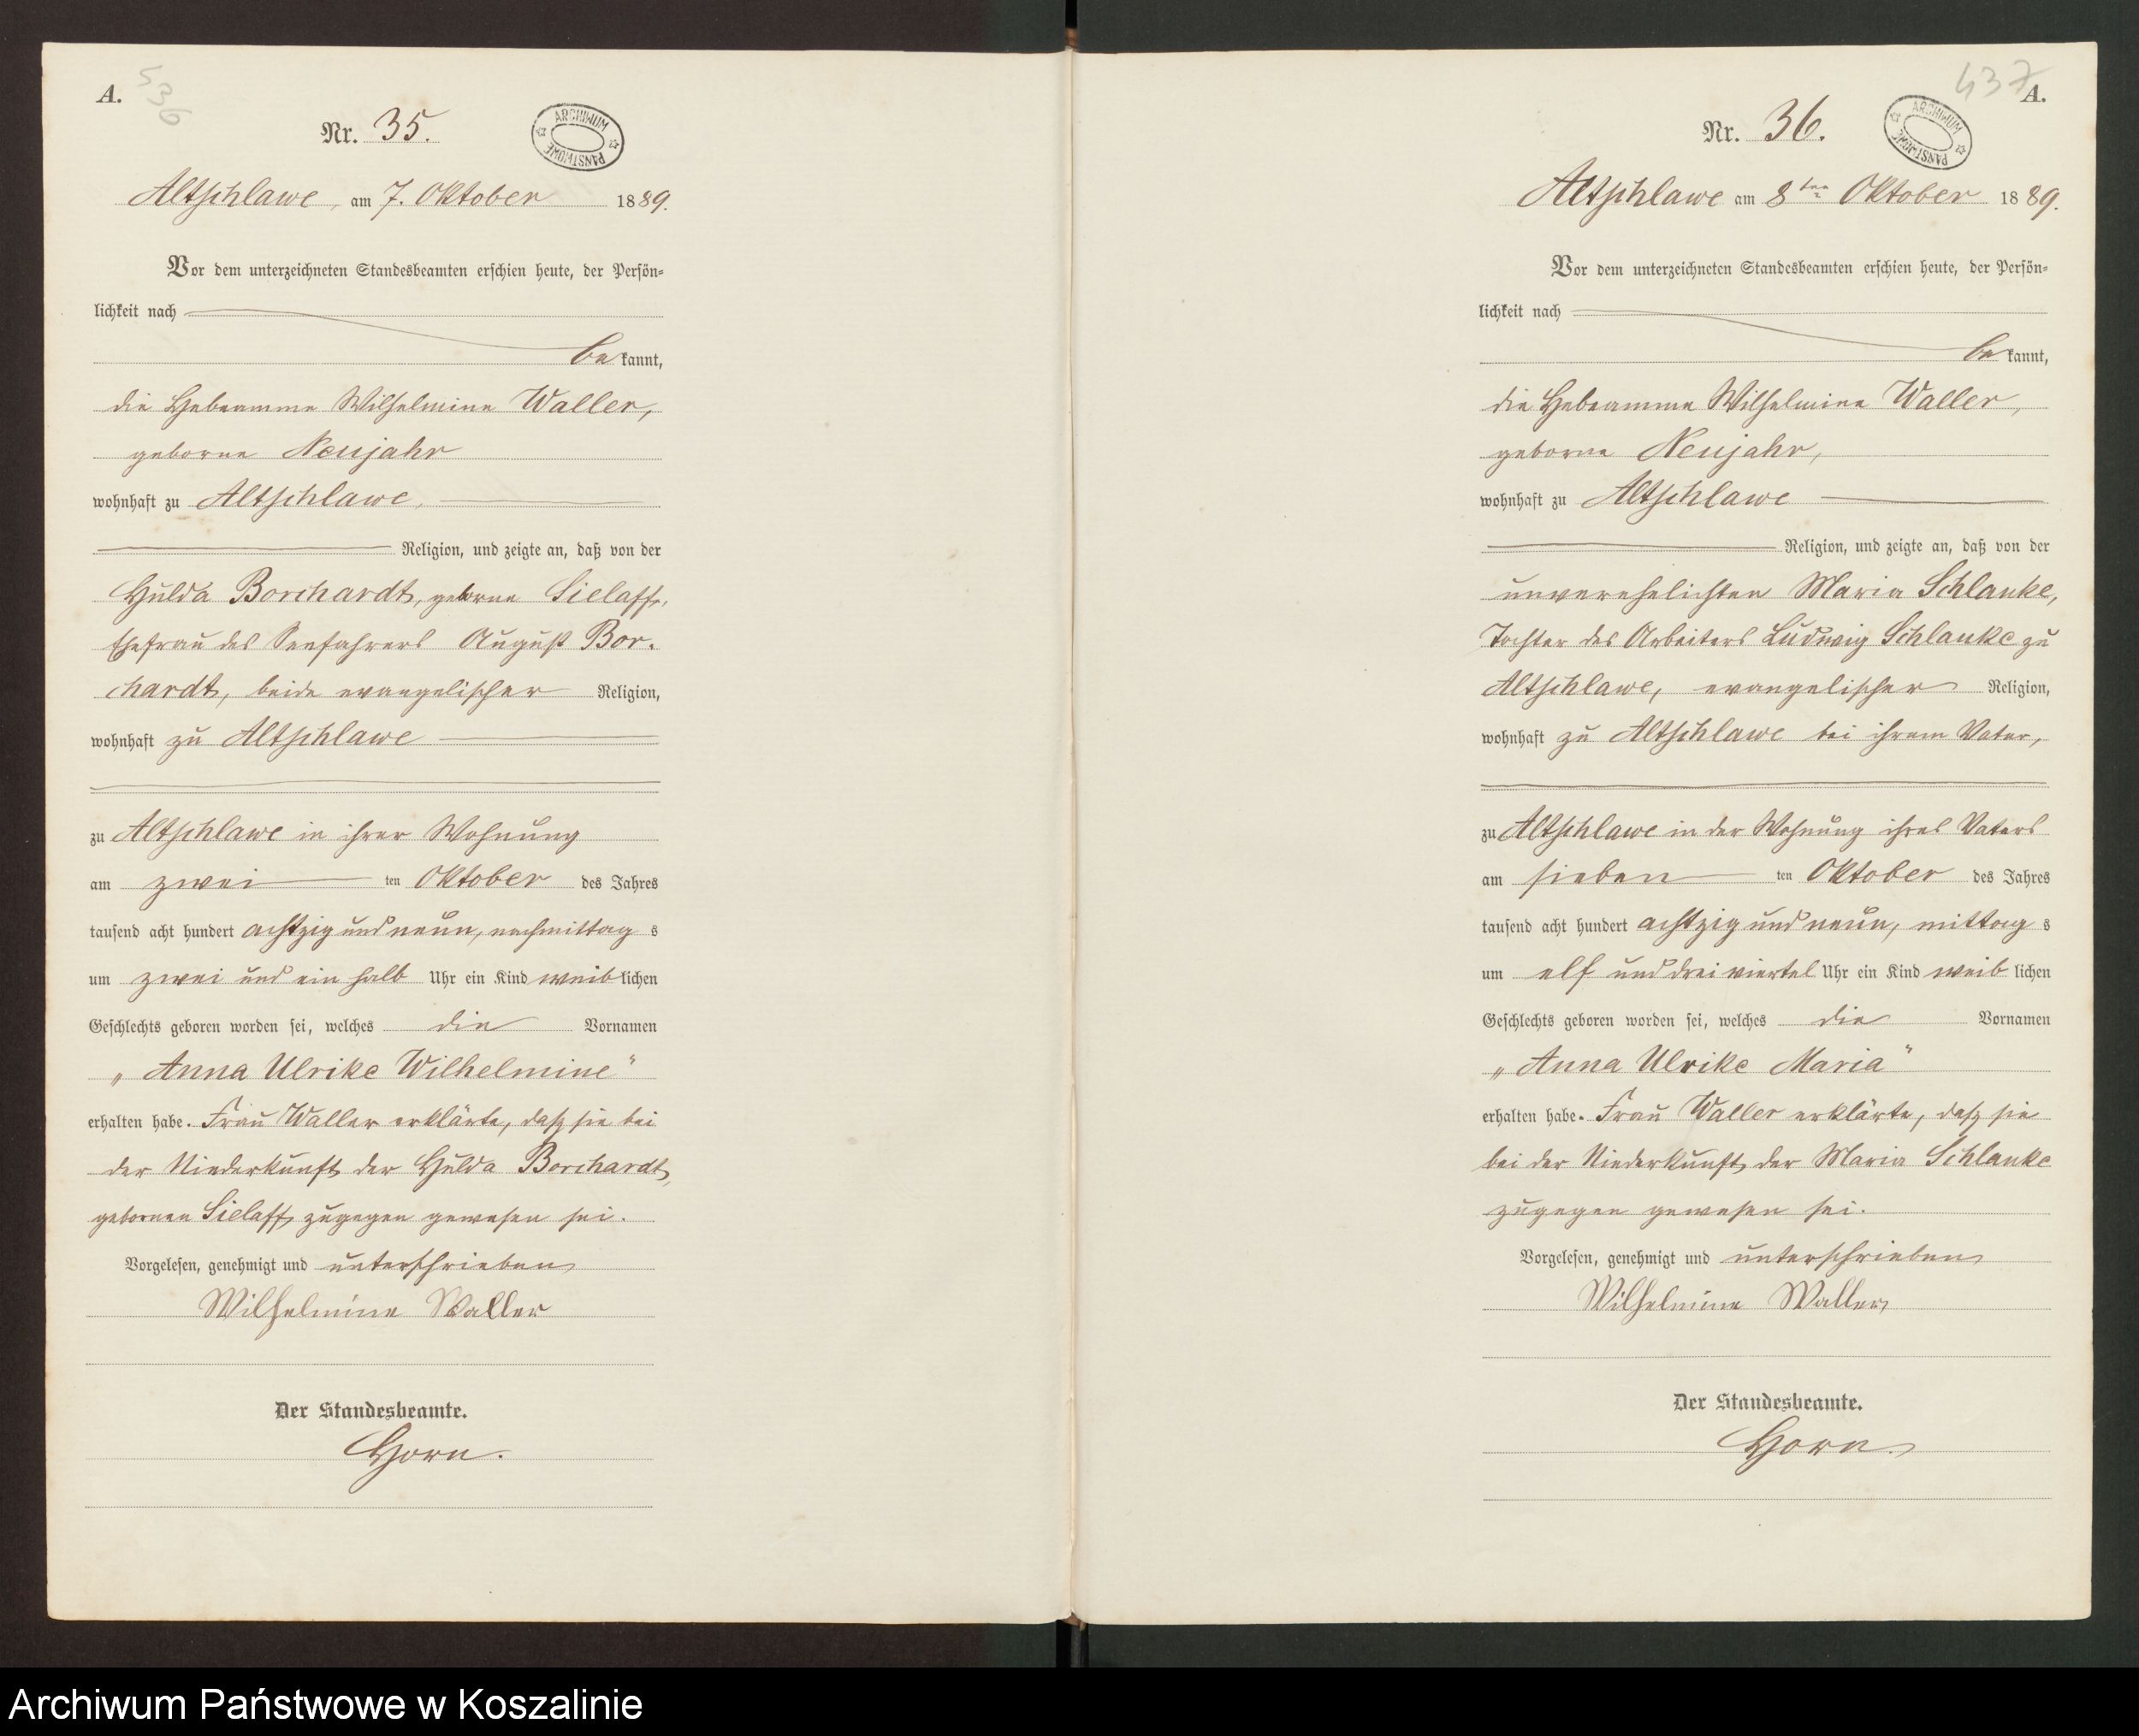 A.
536
Nr. 35.
ARCHIWUM PAŃSTWOWE
Altschlawe, am 7. Oktober 1889.
Vor dem unterzeichneten Standesbeamten erschien heute, der Persön-
lichkeit nach
bekannt,
die Hebeamme Wilhelmine Waller,
geborne Neujahr
wohnhaft zu Altschlawe,
Religion, und zeigte an, daß von der
Hulda Borchardt, geborne Sielaff,
Ehefrau des Seefahrers August Bor-
chardt, beide evangelischer Religion,
wohnhaft zu Altschlawe
zu Altschlawe in ihrer Wohnung
am zwei ten Oktober des Jahres
tausend acht hundert achtzig und neun, nachmittag s
um zwei und ein halb Uhr ein Kind weiblichen
Geschlechts geboren worden sei, welches die Vornamen
„Anna Ulrike Wilhelmine“
erhalten habe. Frau Waller erklärte, daß sie bei
der Niederkunft der Hulda Borchardt,
gebornen Sielaff zugegen gewesen sei.
Vorgelesen, genehmigt und unterschrieben
Wilhelmine Waller
Der Standesbeamte.
Horn.
437
A.
Nr. 36.
ARCHIWUM PAŃSTWOWE
Altschlawe am 8ten Oktober 1889.
Vor dem unterzeichneten Standesbeamten erschien heute, der Persön-
lichkeit nach
bekannt,
die Hebeamme Wilhelmine Waller,
geborne Neujahr,
wohnhaft zu Altschlawe
Religion, und zeigte an, daß von der
unverehelichten Maria Schlanke,
Tochter des Arbeiters Ludwig Schlanke zu
Altschlawe, evangelischer Religion,
wohnhaft zu Altschlawe bei ihrem Vater,
zu Altschlawe in der Wohnung ihres Vaters
am sieben ten Oktober des Jahres
tausend acht hundert achtzig und neun, mittag s
um elf und drei viertel Uhr ein Kind weiblichen
Geschlechts geboren worden sei, welches die Vornamen
„Anna Ulrike Maria“
erhalten habe. Frau Waller erklärte, daß sie
bei der Niederkunft der Maria Schlanke
zugegen gewesen sei.
Vorgelesen, genehmigt und unterschrieben
Wilhelmine Waller
Der Standesbeamte.
Horn.
Archiwum Państwowe w Koszalinie